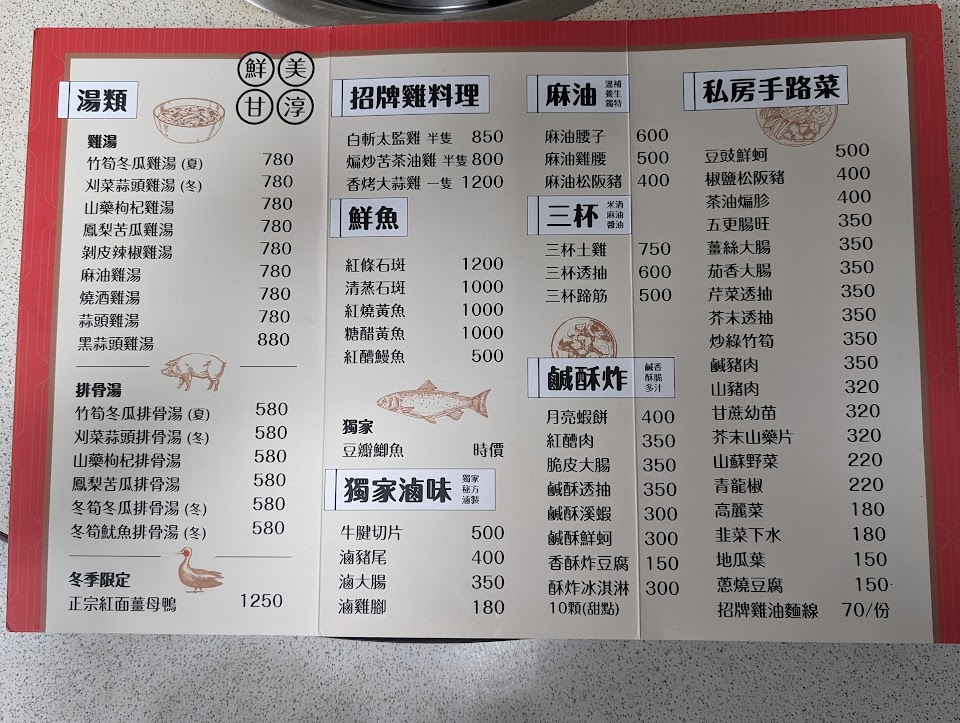 鮮美
甘淳
湯類
雞湯
竹筍冬瓜雞湯 (夏) 780
刈菜蒜頭雞湯 (冬) 780
山藥枸杞雞湯 780
鳳梨苦瓜雞湯 780
剝皮辣椒雞湯 780
麻油雞湯 780
燒酒雞湯 780
蒜頭雞湯 780
黑蒜頭雞湯 880
排骨湯
竹筍冬瓜排骨湯 (夏) 580
刈菜蒜頭排骨湯 (冬) 580
山藥枸杞排骨湯 580
鳳梨苦瓜排骨湯 580
冬筍冬瓜排骨湯 (冬) 580
冬筍魷魚排骨湯 (冬) 580
冬季限定
正宗紅面薑母鴨 1250
招牌雞料理
白斬太監雞 半隻 850
煸炒苦茶油雞 半隻 800
香烤大蒜雞 一隻 1200
鮮魚
紅條石斑 1200
清蒸石斑 1000
紅燒黃魚 1000
糖醋黃魚 1000
紅醩鰻魚 500
獨家
豆瓣鯽魚 時價
獨家滷味 獨家
秘方
滷製
牛腱切片 500
滷豬尾 400
滷大腸 350
滷雞腳 180
麻油 溫補
養生
獨特
麻油腰子 600
麻油雞腰 500
麻油松阪豬 400
三杯 米酒
麻油
醬油
三杯土雞 750
三杯透抽 600
三杯蹄筋 500
鹹酥炸 鹹香
酥脆
多汁
月亮蝦餅 400
紅醩肉 350
脆皮大腸 350
鹹酥透抽 350
鹹酥溪蝦 300
鹹酥鮮蚵 300
香酥炸豆腐 150
酥炸冰淇淋 300
10顆(甜點)
私房手路菜
豆豉鮮蚵 500
椒鹽松阪豬 400
茶油煸胗 400
五更腸旺 350
薑絲大腸 350
茄香大腸 350
芹菜透抽 350
芥末透抽 350
炒綠竹筍 350
鹹豬肉 350
山豬肉 320
甘蔗幼苗 320
芥末山藥片 320
山蘇野菜 220
青龍椒 220
高麗菜 180
韭菜下水 180
地瓜葉 150
蔥燒豆腐 150
招牌雞油麵線 70/份